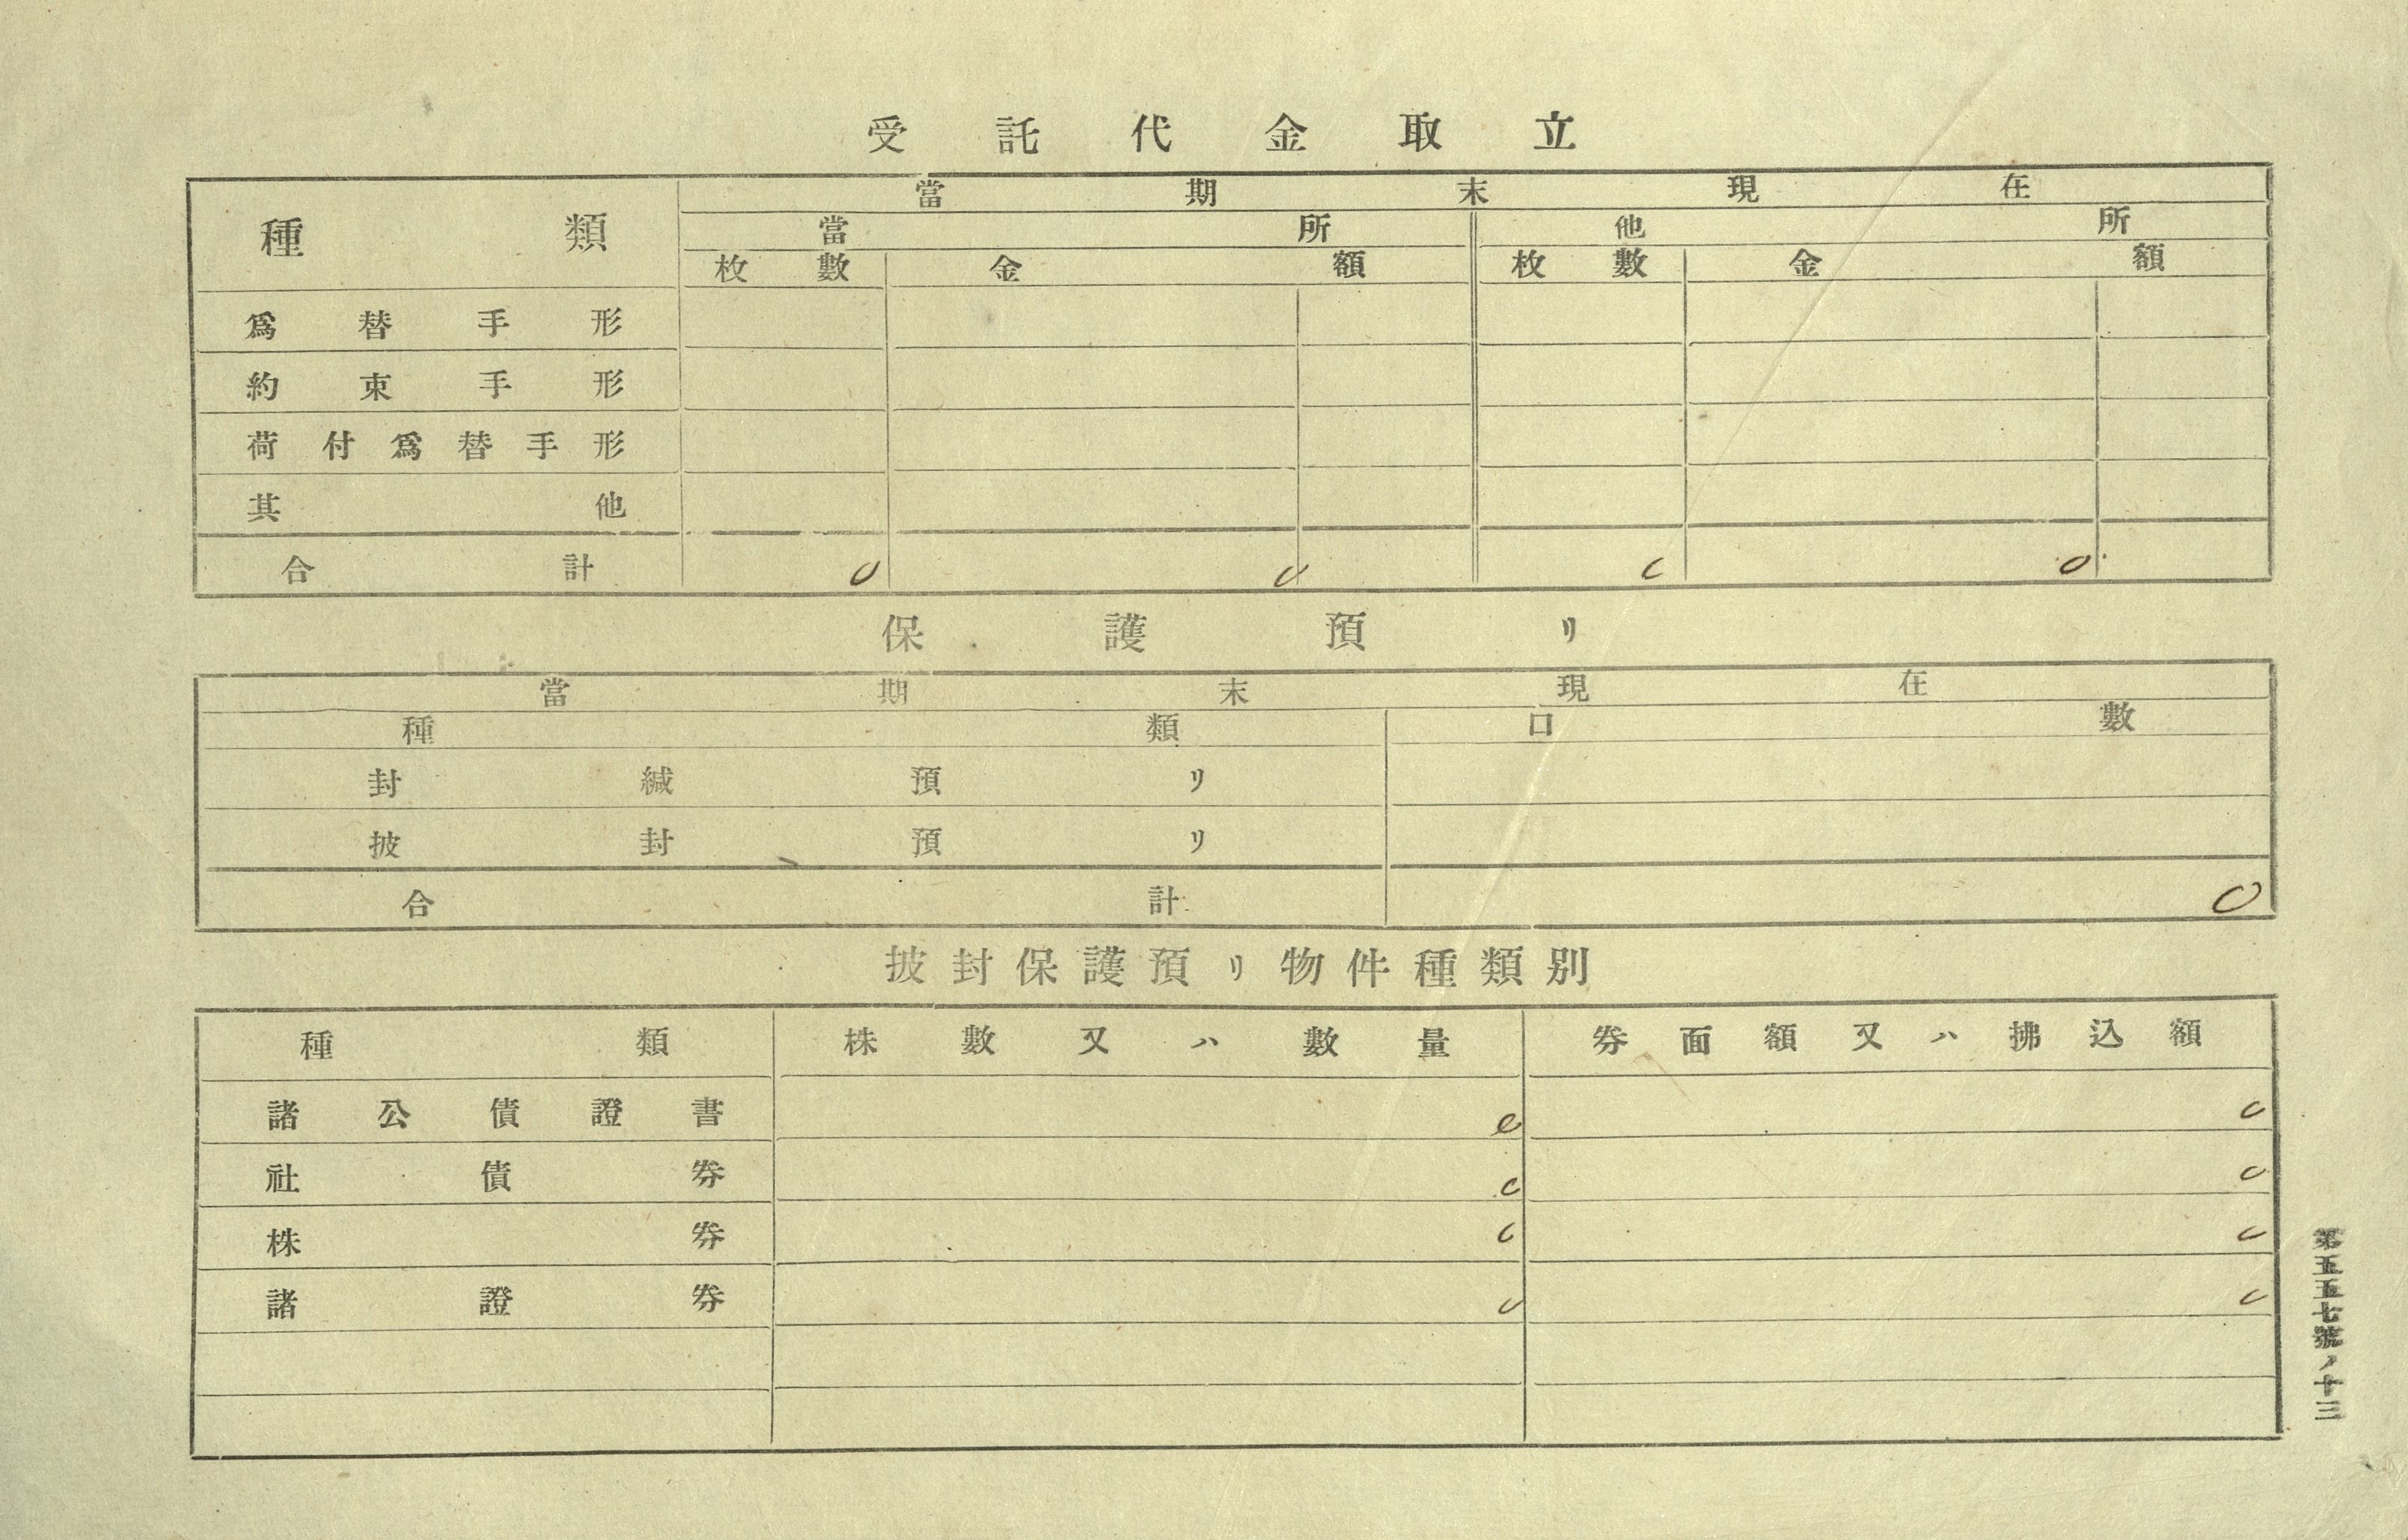 受託代金取立
種類 當期末現在
當所 他所
枚數 金額 枚數 金額
爲替手形
約束手形
荷付爲替手形
其他
合計 0 0 0 0
保護預リ
當期末現在
種類 口數
封緘預リ
披封預リ
合計 0
披封保護預リ物件種類別
種類 株數又ハ數量 券面額又ハ拂込額
諸公債證書 0 0
社債券 0 0
株券 0 0
諸證券 0 0
第五五七號ノ十三